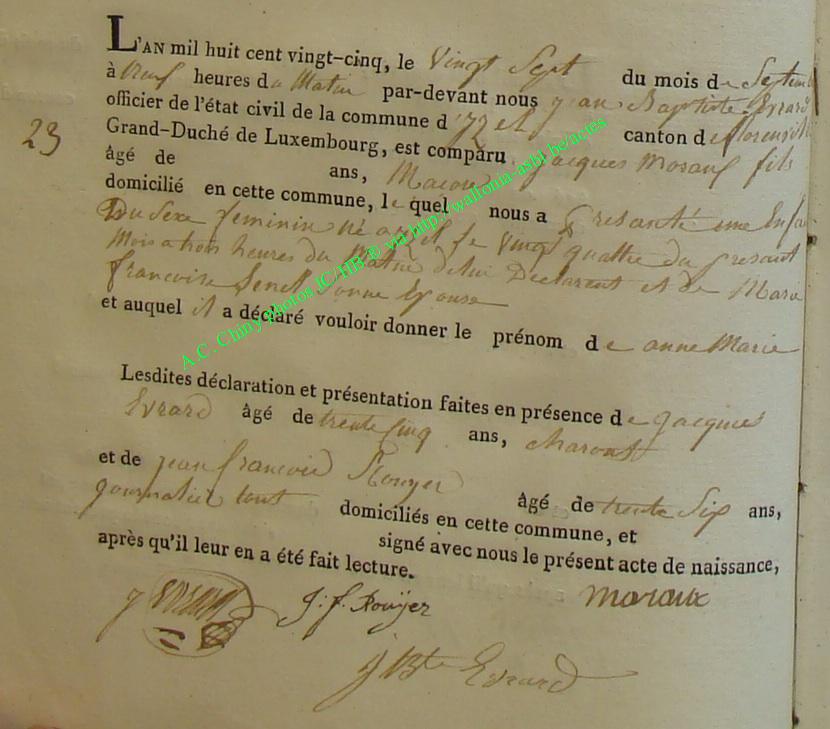 L'AN mil huit cent vingt-cinq, le Vingt Sept du mois de Septemb
à Neuf heures du Matin par-devant nous jean Baptiste Evrard
officier de l'état civil de la commune d'izel canton de florenville
23
Grand-Duché de Luxembourg, est comparu jacques Moraux fils
âgé de ans, Macon
domicilié en cette commune, lequel nous a presanté une Enfa
Du Sexe feminin né a izel le Vingt quattre du presant
Mois a trois heures du Matin de lui Declarent et de Marie
francoise Epouse
et auquel il a déclaré vouloir donner le prénom de anne Marie
Lesdites déclaration et présentation faites en présence de jacques
Evrard âgé de trente Cinq ans, charon
et de jean francois Rouyer âgé de trente Six ans,
journalier tout domiciliés en cette commune, et
signé avec nous le présent acte de naissance,
après qu'il leur en a été fait lecture.
j Evrard J: f. Rouÿer moraux
J Bte Evrard
A.C. Chiny photos IC/HB © via http://wallonia-asbl.be/actes